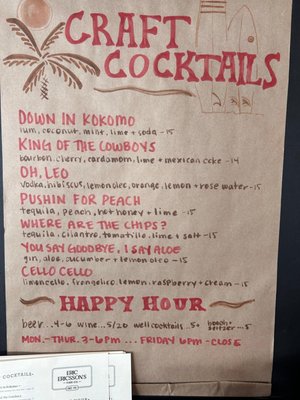 CRAFT
COCKTAILS
DOWN IN KOKOMO
rum, coconut, mint, lime + soda -15
KING OF THE COWBOYS
bourbon, cherry, cardamom, lime + mexican coke -14
OH, LEO
vodka, hibiscus, lemon oleo, orange, lemon + rose water -15
PUSHIN FOR PEACH
tequila, peach, hot honey + lime -15
WHERE ARE THE CHIPS?
tequila, cilantro, tomatillo, lime + salt -15
YOU SAY GOODBYE, I SAY ALOE
gin, aloe, cucumber + lemon oleo -15
CELLO CELLO
limoncello, frangelico, lemon, raspberry + cream -15
HAPPY HOUR
beer.. 4-6 wine... 5/20 well cocktails.. 5+ beach + seltzer -5
MON.-THUR. 3-6pm ... FRIDAY 6pm - CLOSE
COCKTAILS
ERIC
ERICSSON'S